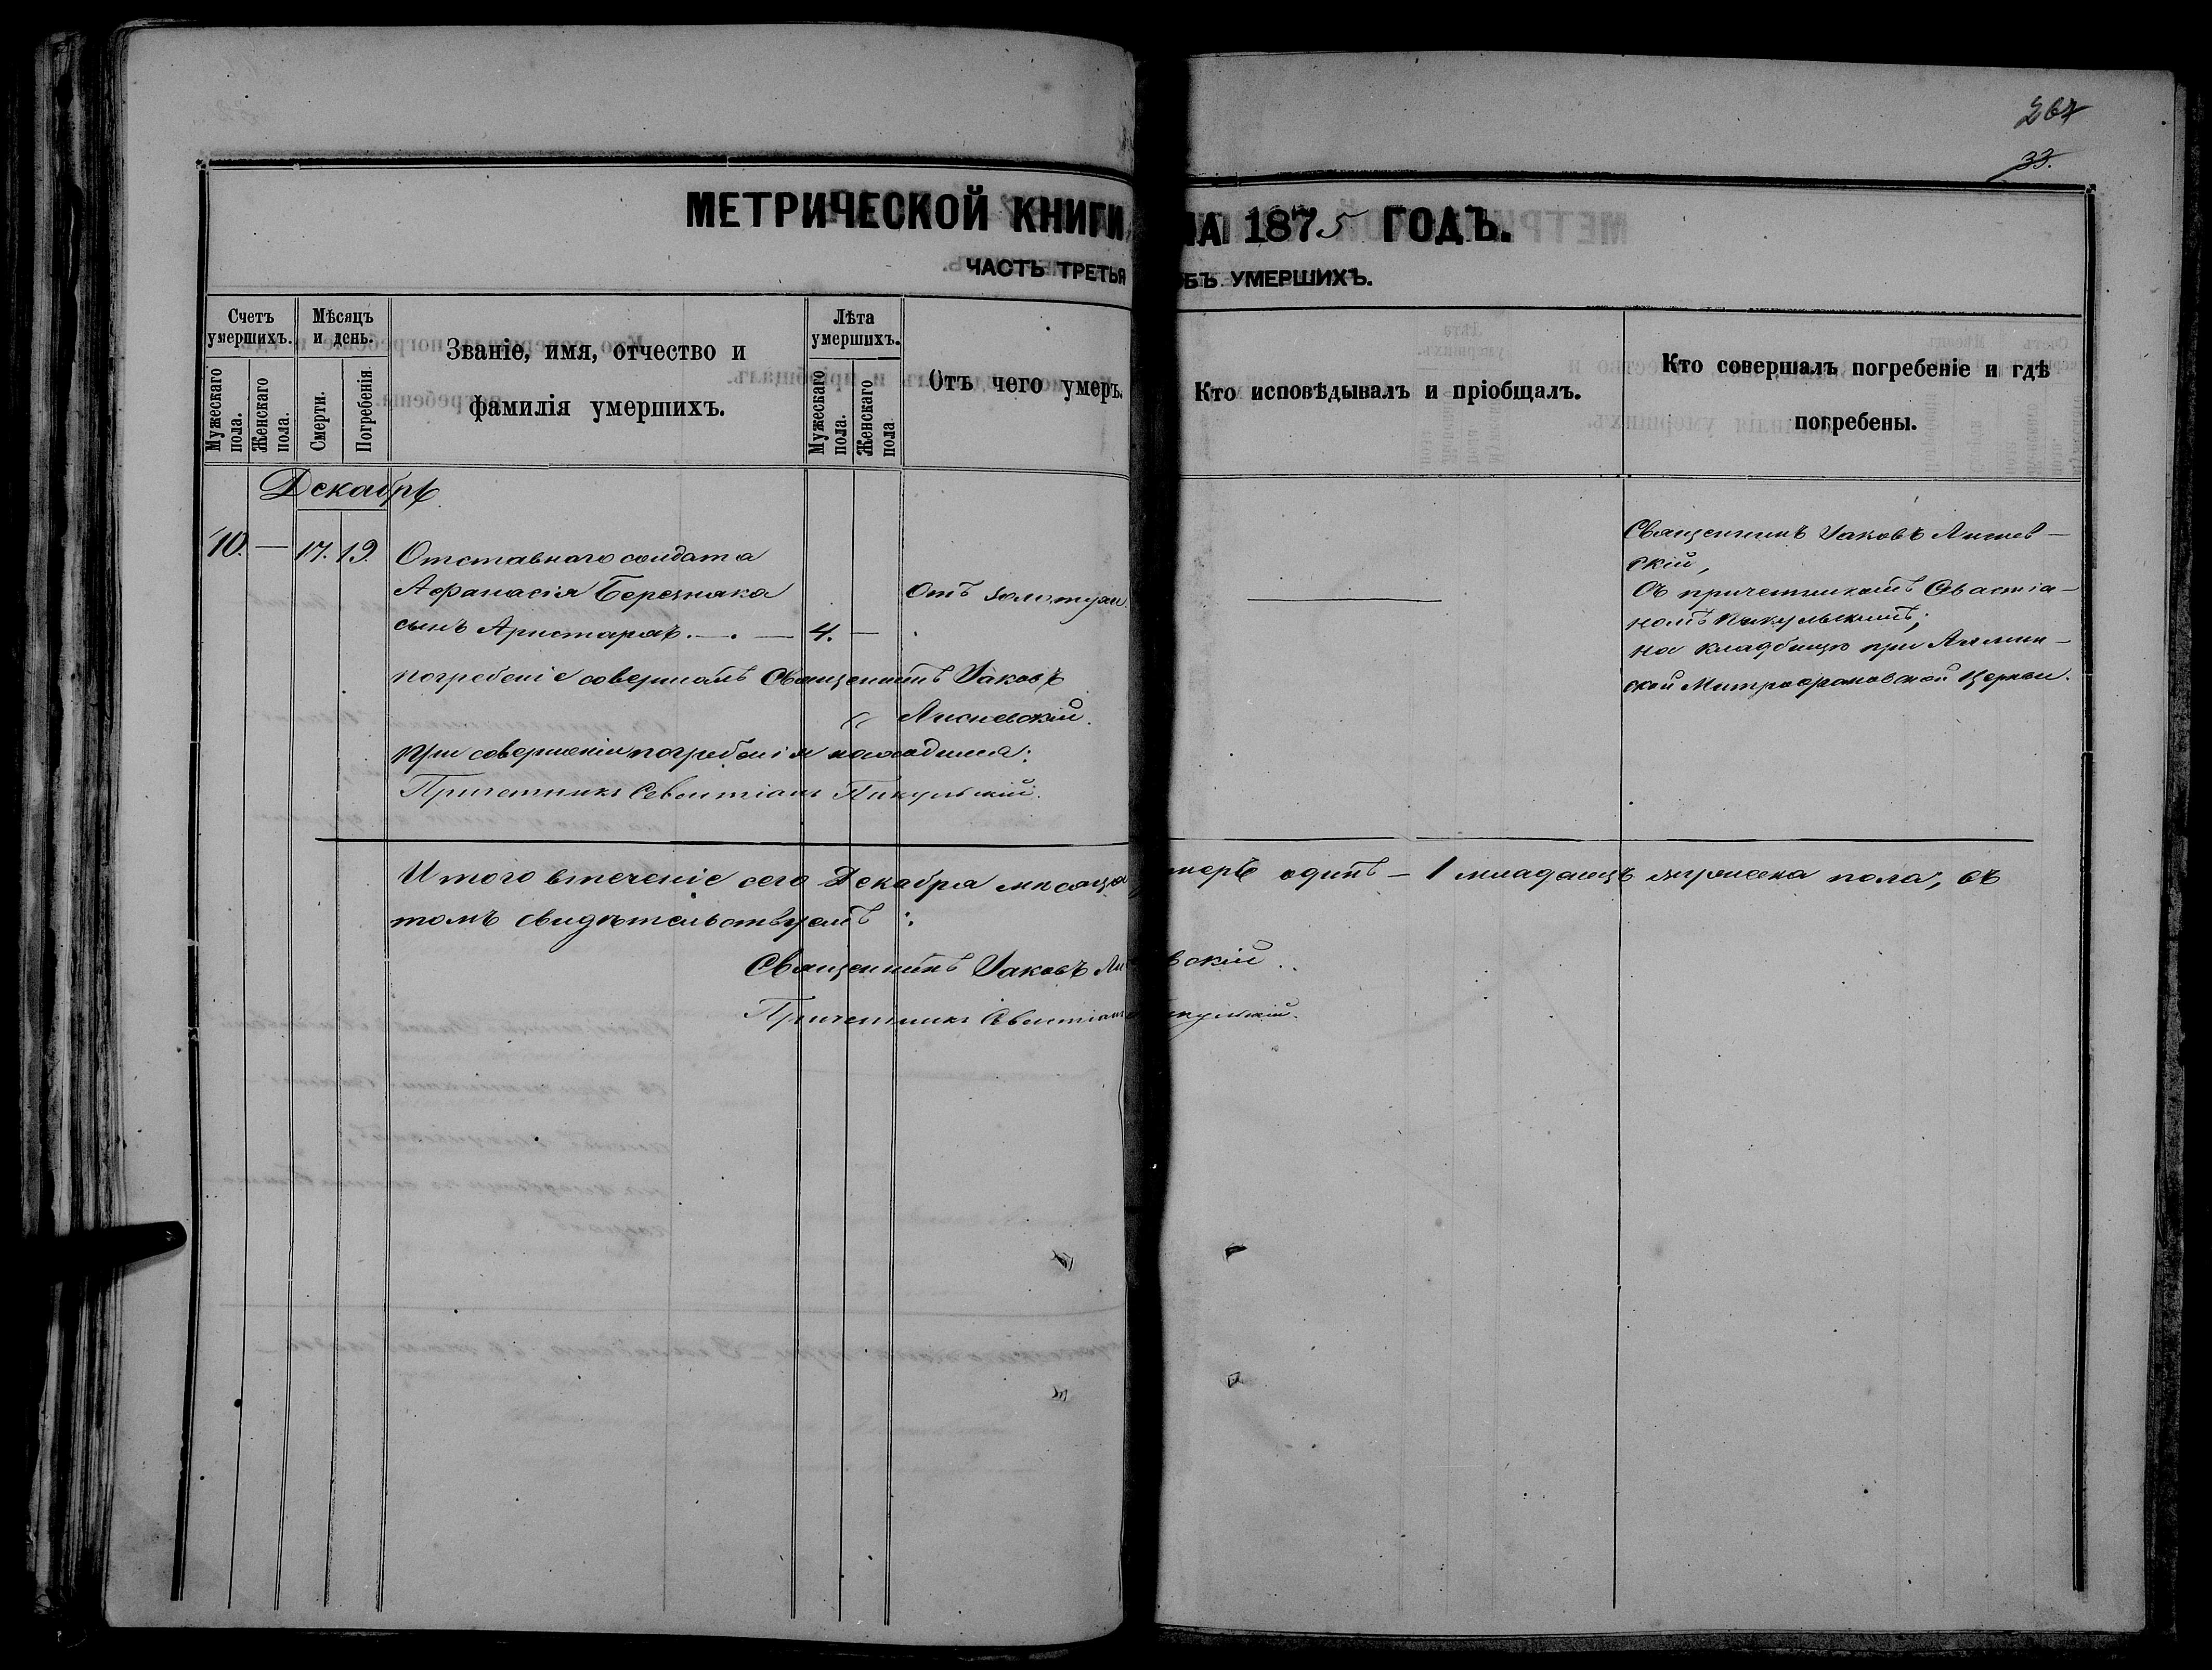 264
33.
МЕТРИЧЕСКОЙ КНИГИ НА 1875 ГОДЪ.
ЧАСТЬ ТРЕТЬЯ ОБЪ УМЕРШИХЪ.
Счетъ умершихъ.
Мужескаго пола.
Женскаго пола.
Мѣсяцъ и день.
Смерти.
Погребенія.
Званіе, имя, отчество и
фамилія умершихъ.
Лѣта умершихъ.
Мужескаго пола.
Женскаго пола
Отъ чего умеръ.
Кто исповѣдывалъ и пріобщалъ.
Кто совершалъ погребеніе и гдѣ
погребены.
Декабрь
10. — 17. 19. Отставнаго солдата
Афанасія Березняка
сынъ Аристархъ. — . — 4. —
Отъ золотухи.
Священникъ Іаковъ
скій,
Съ причетникомъ Севастіа-
номъ Пикульскимъ;
на кладбищѣ при
ской Митрофановской Церкви.
Погребеніе совершалъ Священникъ Іаковъ
При совершеніи погребенія находился:
Причетникъ Севастіанъ Пикульскій.
Итого втеченіе сего Декабря мѣсяца умеръ одинъ — 1 младенецъ мужеска пола, въ
томъ свидѣтельствуемъ:
Священникъ Іаковъ
Причетникъ Севастіанъ Пикульскій.